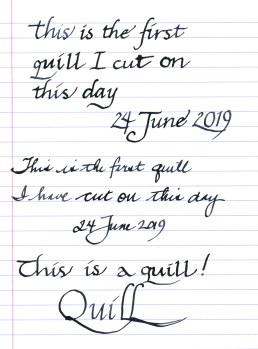 this is the first
quill I cut on
this day
24 June 2019
This is the first quill
I have cut on this day
24 June 2019
This is a quill!
Quill